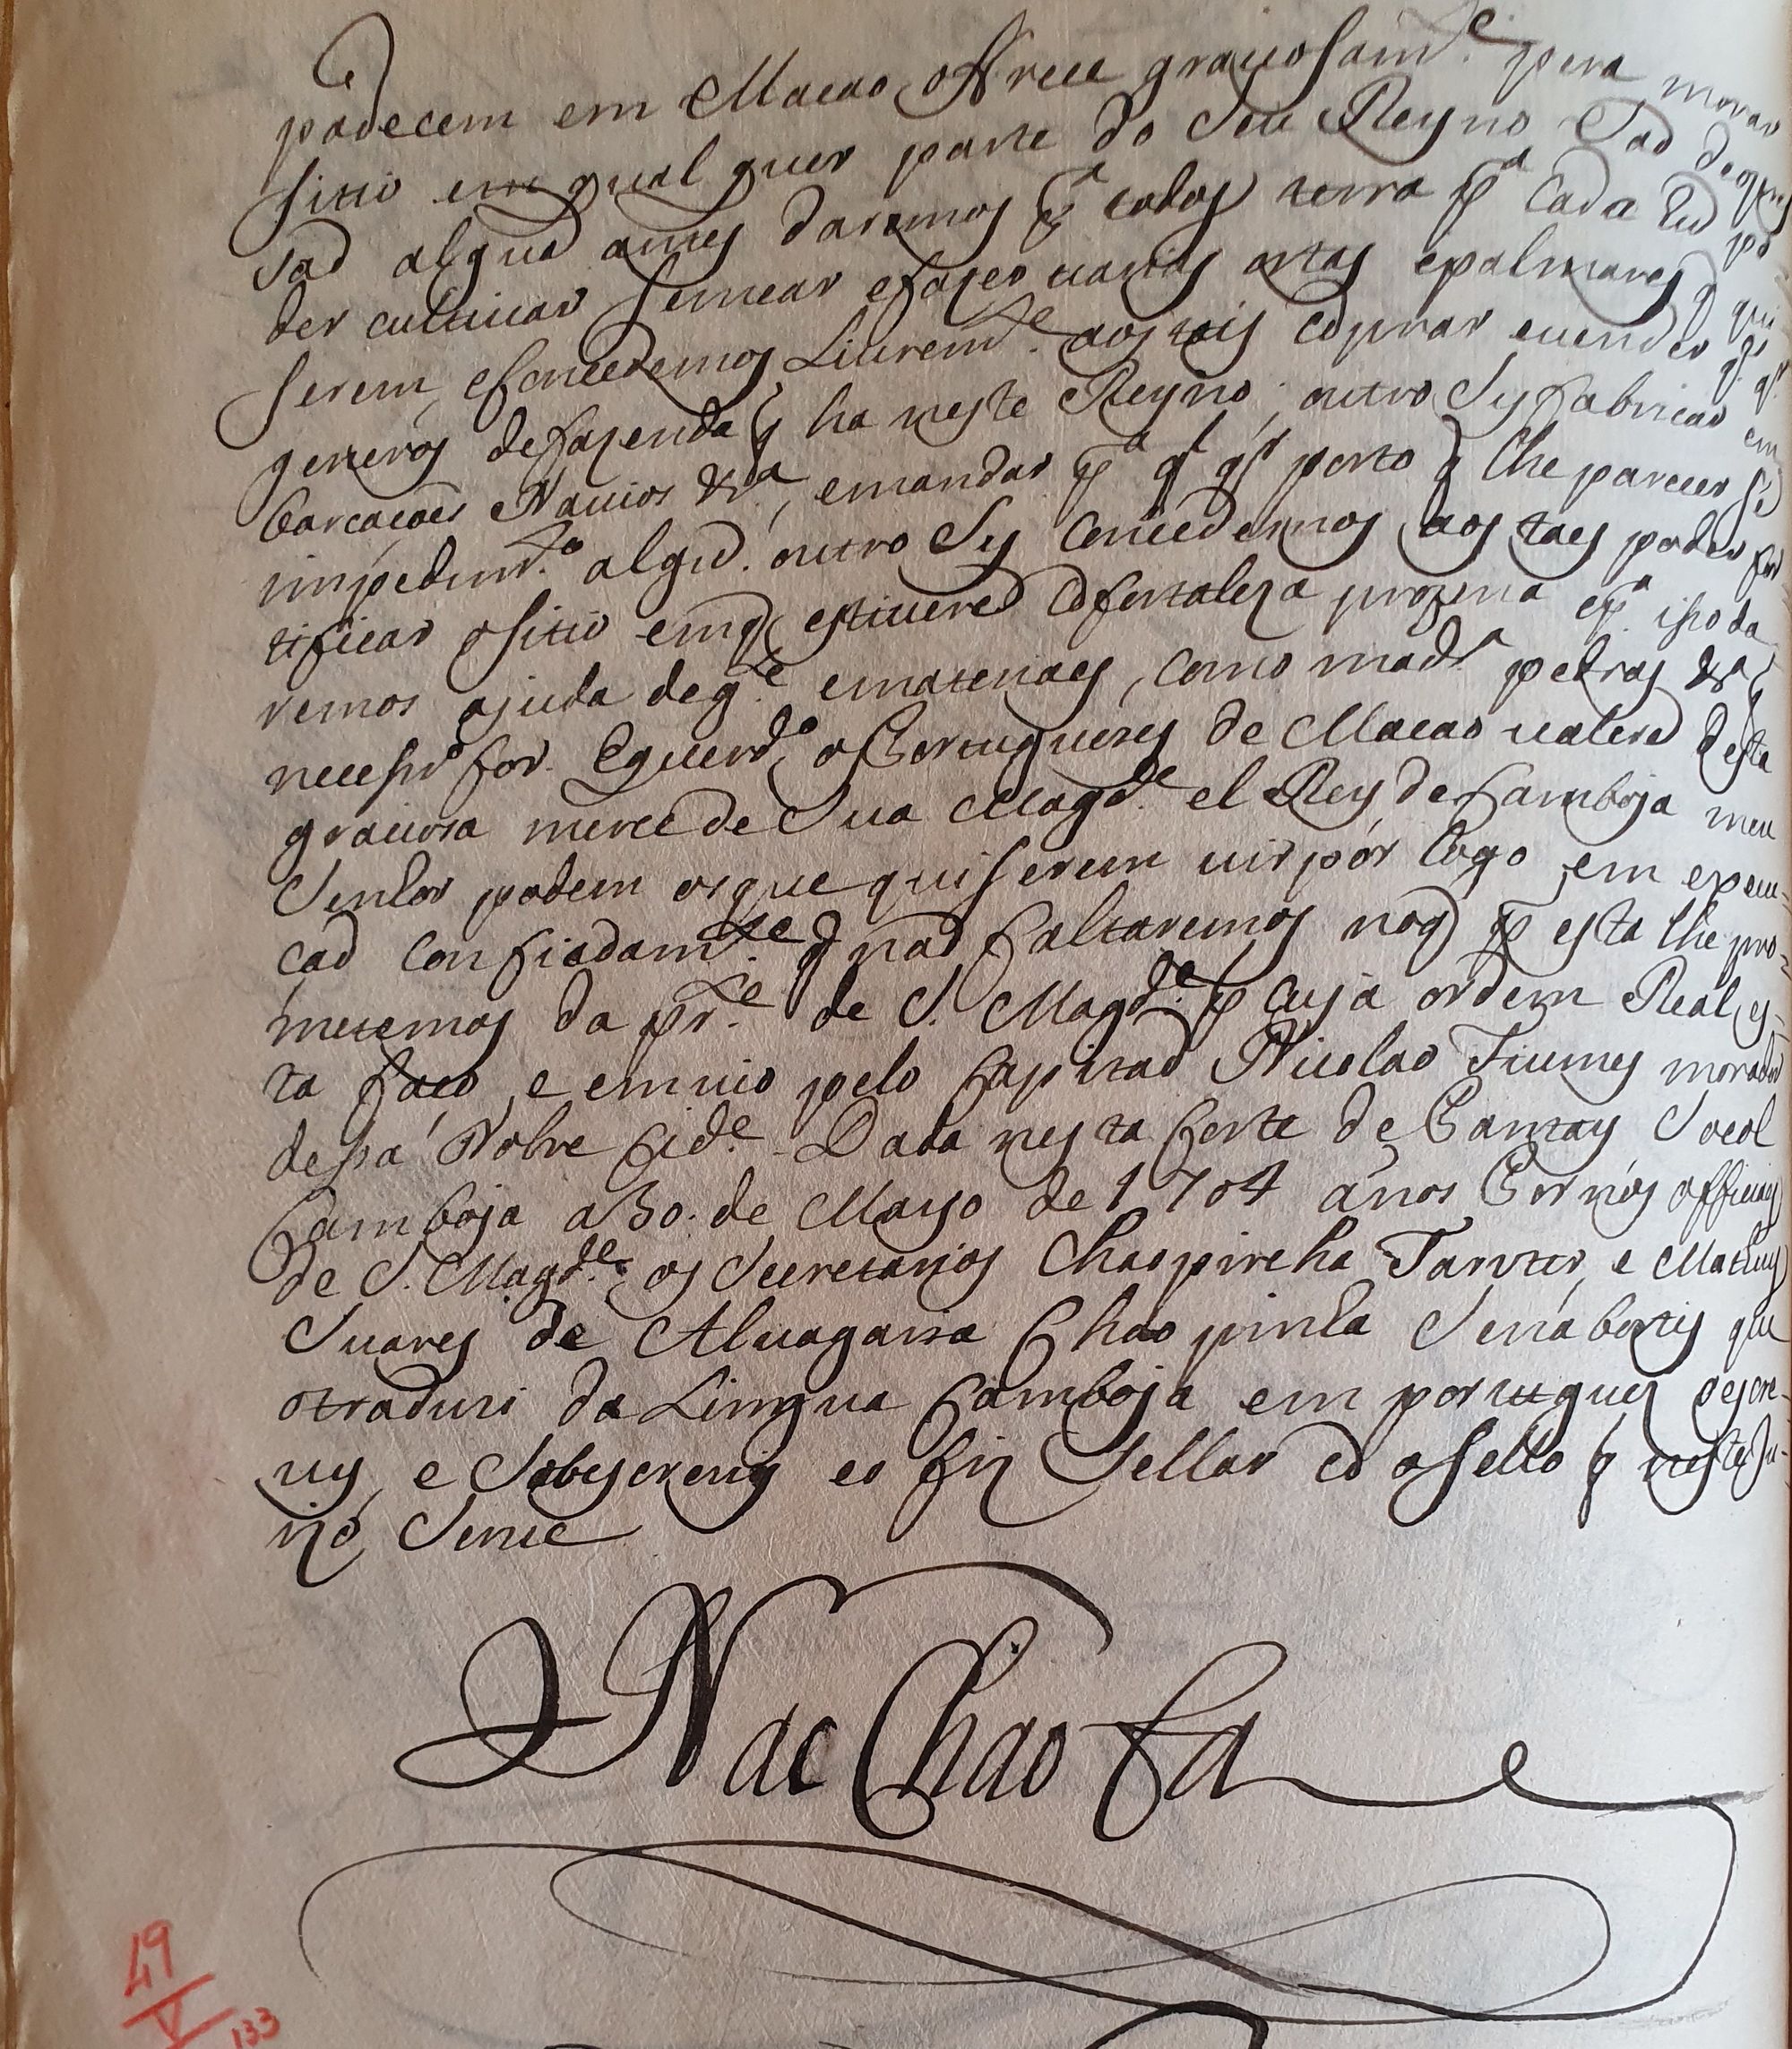 padecem em Macao, offrece graciosam.te pera morar
sitio em qual quer parte do Seu Reyno Sad
sad algua antes daremos p.a todos terra p.a Cada hu po
der cultiuar semear e fazer uarias ortas e palmares q qui
serem, e Concedemos Liurem.te aos tais coprar e uender
generos de fazenda q ha neste Reyno; outro Sy fabricar em
barcações Nauios &.a, e mandar p.a q.l q.r porto q lhe parecer se
impedim.to algu. outro Sy Concedemos aos taes poder for
tificar o sitio em q estiuere co fortaleza propria e p.a isso da
remos ajuda de g.te e materiaes, como mad.a pedras &.a q
necessr.o for. E querd.o os Portuguezes de Macao ualere desta
graciosa merce de Sua Mag.de el Rey de Camboja meu
Senhor podem os que quiserem uir pôr logo em execu-
cad confiadam.te q nad faltaremos no q p esta lhe pro-
metemos da pr.te de S. Mag.de p cuja ordem Real es-
ta faco, e emuio pelo Capitad Nicolao Fiumes morador
dessa Nobre Cid.e Dada nesta Corte de Cantay
Camboja a 30. de Mayo de 1704 anos Por nós officiaes
de S. Mag.de os Secretarios Chaopireha Tanter, e Mathias
Suares de Aluagaria Chao pinha Senabortis que
o traduzi da Lingua Camboja em portugues o escre-
uy, e Sobescreuy eo fiz Sellar co o sello q neste Ju-
izo Serue
Nac Chao Fa
49
V
133